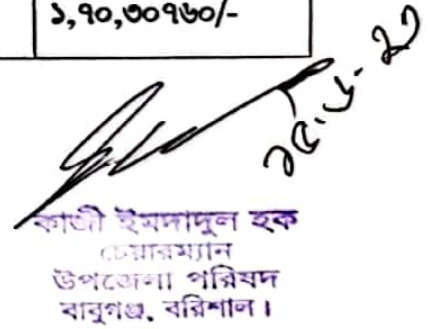 ১,৭০,৩০৭৬০/-
২৫.৬.২১
কাজী ইমদাদুল হক
চেয়ারম্যান
উপজেলা পরিষদ
বাবুগঞ্জ, বরিশাল।